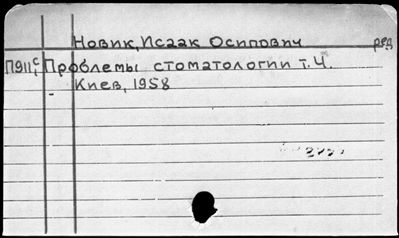 Новик, Исаак Осипович ред
П911,с Проблемы стоматологии т. 4.
Киев, 1958